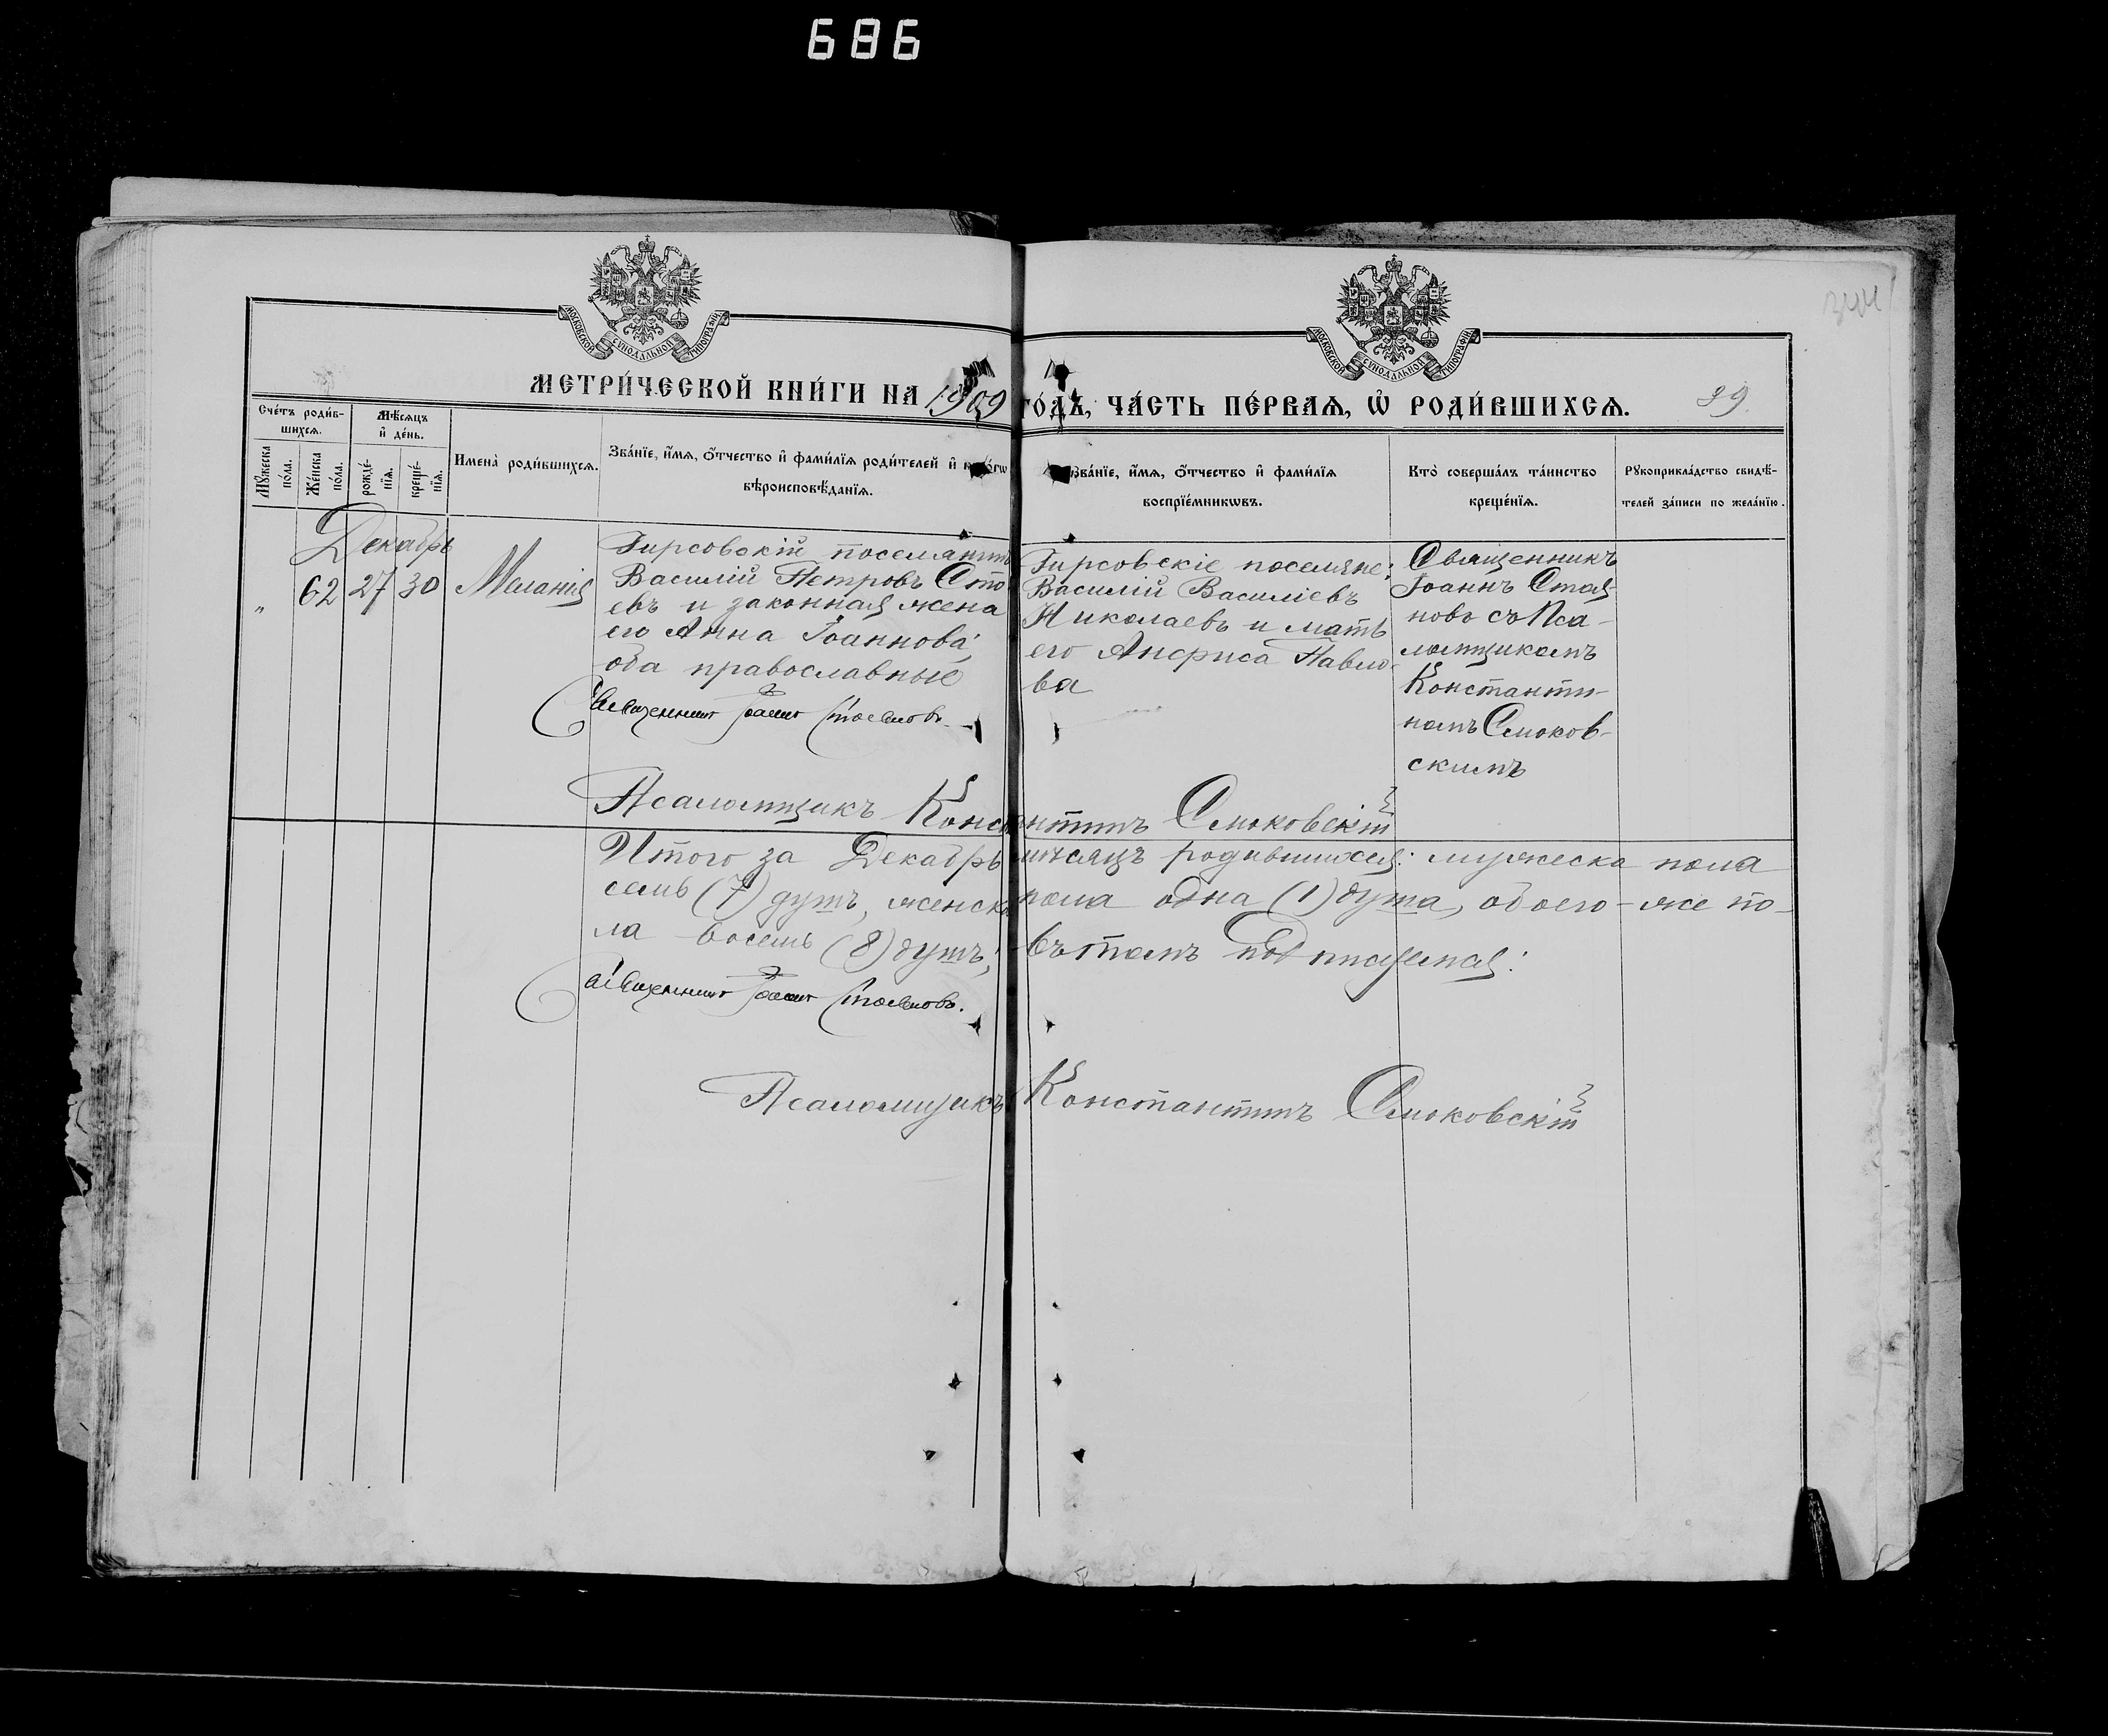 686
344
МОСКОВСКОЙ СѴНОДАЛЬНОЙ ТИПОГРАФІИ
МОСКОВСКОЙ СѴНОДАЛЬНОЙ ТИПОГРАФІИ
МЕТРИ́ЧЕСКОЙ КНИ́ГИ НА 1909 ГО́ДЪ, ЧА́СТЬ ПЕ́РВАѦ, Ѽ РОДИ́ВШИХСѦ. 99
Сче́тъ роди́в-
шихсѧ.
Мѣ́сѧцъ
и҆ де́нь.
Мꙋ́жеска по́ла.
Же́нска по́ла.
рожде́-
нїѧ.
креще́-
нїѧ.
Имена̀ роди́вшихсѧ.
Зва́нїе, и҆́мѧ, о҆́тчество и҆ фами́лїѧ роди́телей и҆
вѣроисповѣ́данїѧ.
Зва́нїе, и҆́мѧ, о҆́тчество и҆ фами́лїѧ
воспрїе́мникѡвъ.
Кто̀ соверша́лъ та́инство
креще́нїѧ.
Рꙋкоприкла́дство свидѣ́-
телей за́писи по жела́нїю.
Декабрь
" 62 27 30 Меланія
Гирсовскій поселянинъ
Василій Петровъ Сто
евъ и законная жена
его Анна Іоаннова,
оба православные
Священникъ Іоаннъ Стояновъ.
Гирсовскіе поселяне:
Василій Василіевъ
Николаевъ и мать
его Анфиса Павло-
ва
Священникъ
Іоаннъ Стоя-
новъ съ Пса-
ломщикомъ
Константи-
номъ Смоков-
скимъ
Псаломщикъ Константинъ Смоковскій
Итого за Декабрь мѣсяцъ родившихся: мужеска пола
семь (7) душъ, женска пола одна (1) душа, обоего-же по-
ла восемь (8) душъ; въ томъ подписуемся:
Священникъ Іоаннъ Стояновъ.
Псаломщикъ Константинъ Смоковскій